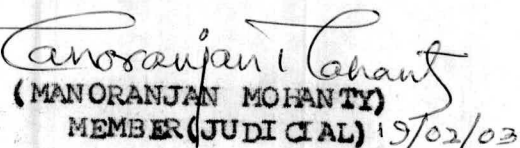 Manoranjan Mohanty
(MANORANJAN MOHANTY)
MEMBER(JUDICIAL) 19/02/03